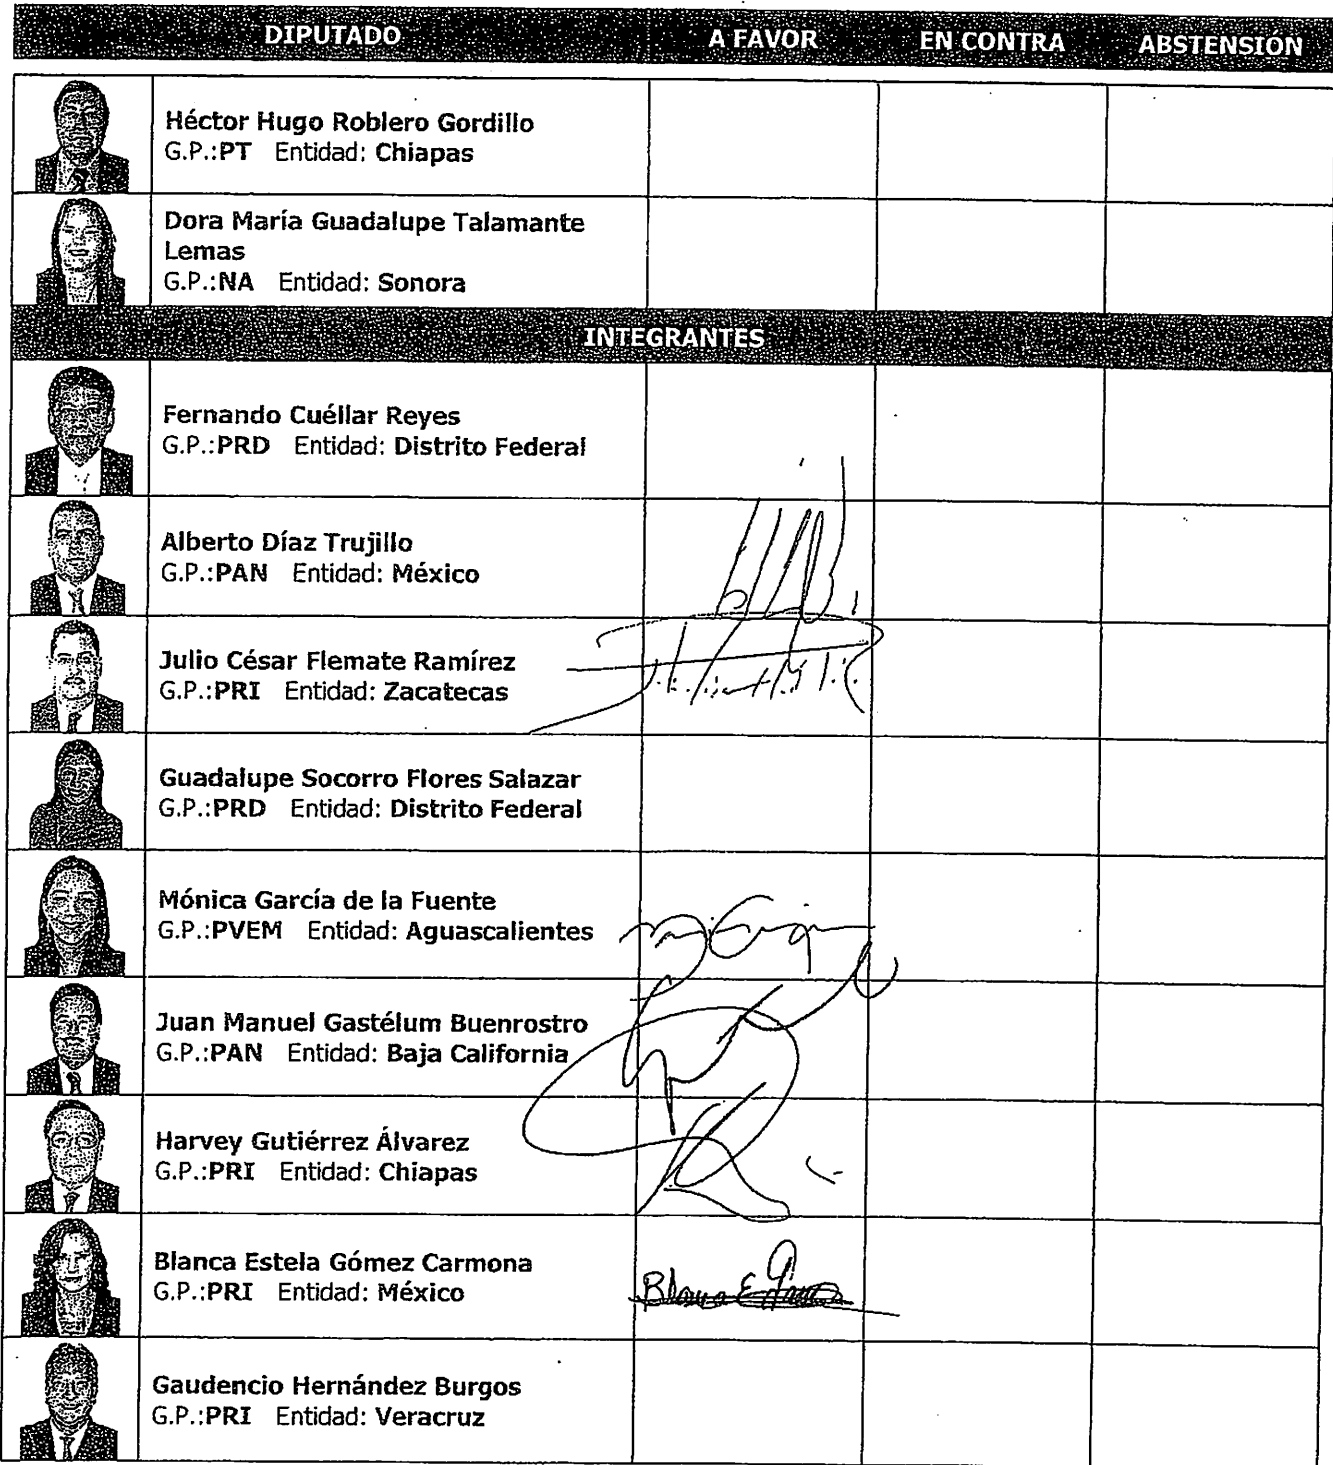 DIPUTADO A FAVOR EN CONTRA ABSTENSIÓN
Héctor Hugo Roblero Gordillo
G.P.:PT Entidad: Chiapas
Dora María Guadalupe Talamante
Lemas
G.P.:NA Entidad: Sonora
INTEGRANTES
Fernando Cuéllar Reyes
G.P.:PRD Entidad: Distrito Federal
Alberto Díaz Trujillo
G.P.:PAN Entidad: México
Julio César Flemate Ramírez
G.P.:PRI Entidad: Zacatecas
Guadalupe Socorro Flores Salazar
G.P.:PRD Entidad: Distrito Federal
Mónica García de la Fuente
G.P.:PVEM Entidad: Aguascalientes
Juan Manuel Gastélum Buenrostro
G.P.:PAN Entidad: Baja California
Harvey Gutiérrez Álvarez
G.P.:PRI Entidad: Chiapas
Blanca Estela Gómez Carmona
G.P.:PRI Entidad: México
Blanca E
Gaudencio Hernández Burgos
G.P.:PRI Entidad: Veracruz